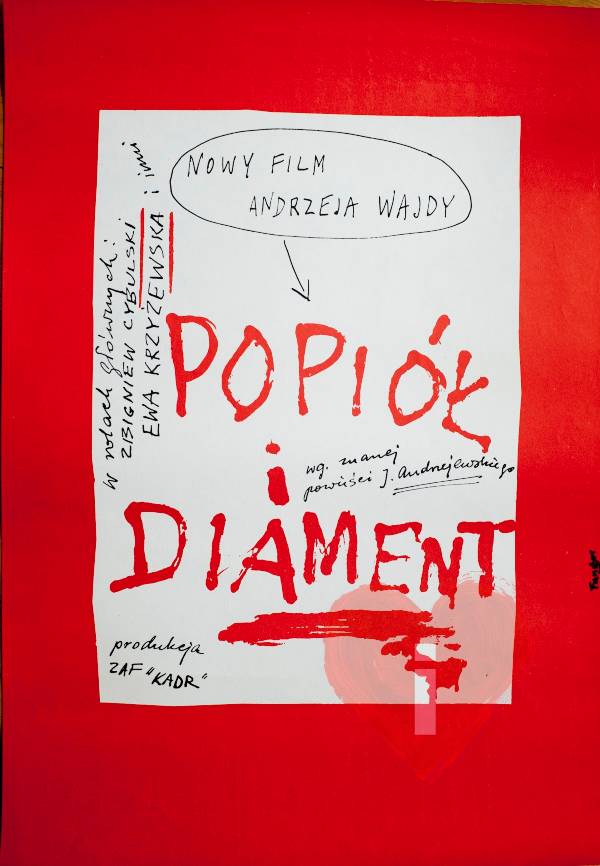 NOWY FILM
ANDRZEJA WAJDY
w rolach głównych:
ZBIGNIEW CYBULSKI
EWA KRZYŻEWSKA i inni
POPIÓŁ
i
wg. znanej
powieści J. Andrzejewskiego
DIAMENT
produkcja
ZAF "KADR"
Fangor